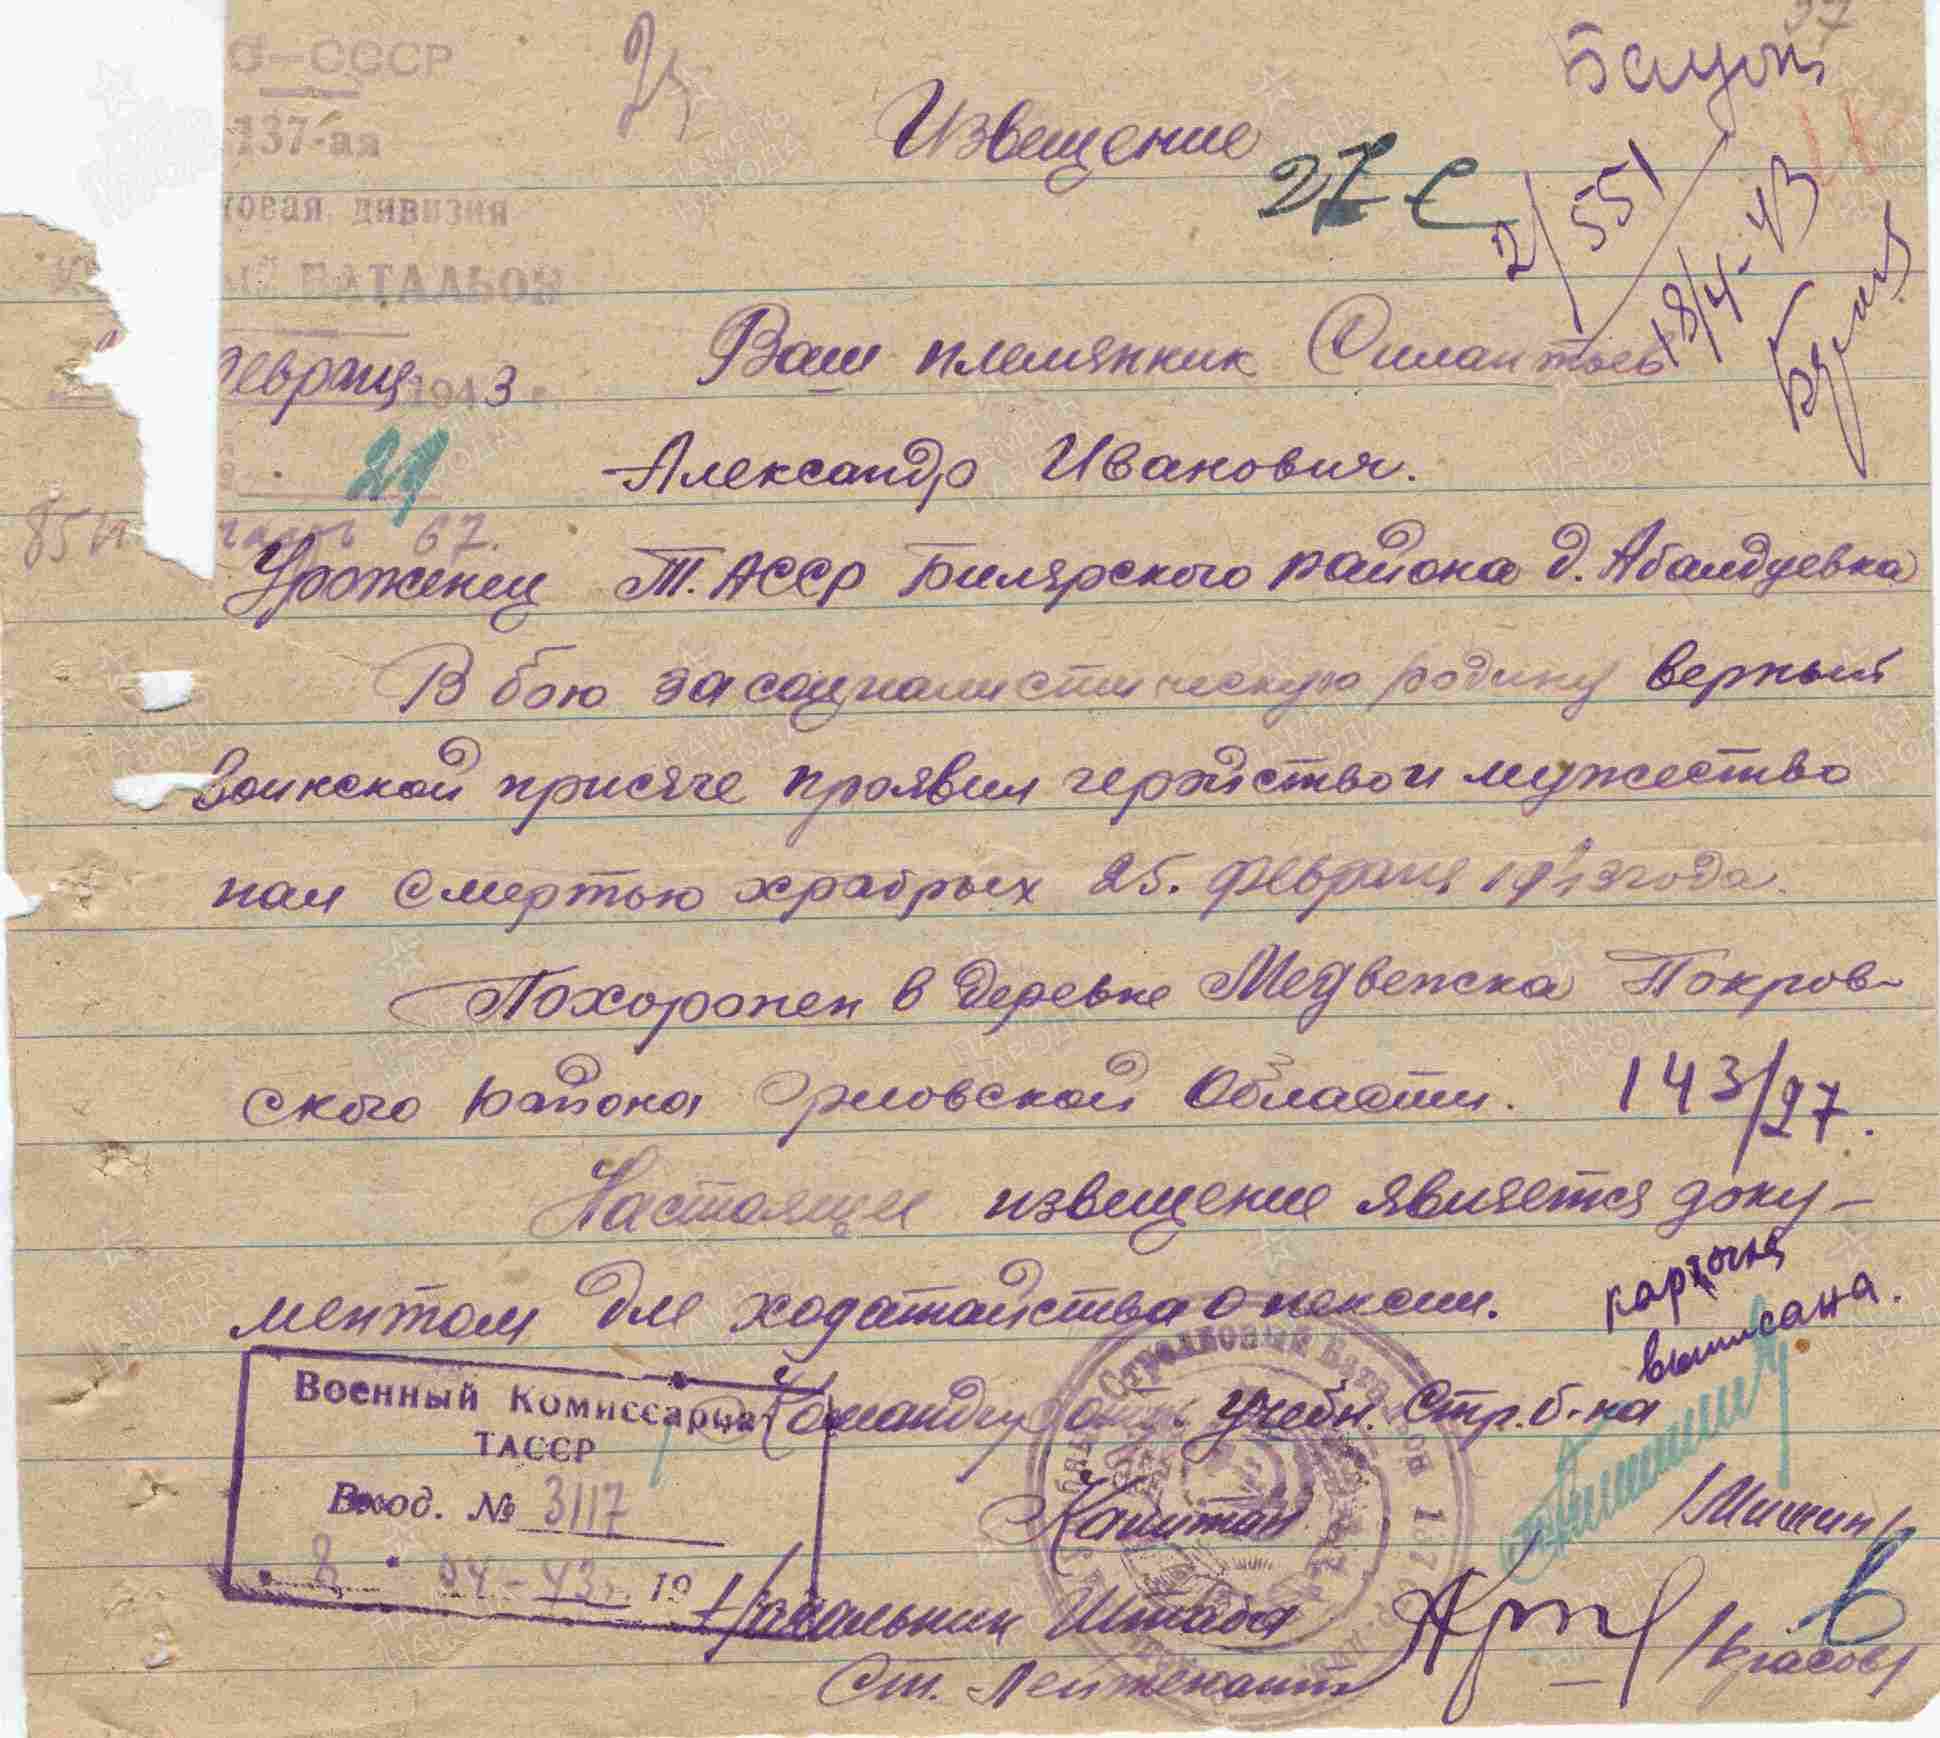 О-СССР
137-ая
овая дивизия
ый БАТАЛЬОН
февраля 1943 г.
29
67.
Извещение
27
2/551
18/4-43
Ваш племянник Силантьев
Александр Иванович.
Уроженец Т.АССР Билярского района д. Абалдуевка
В бою за социалистическую родину верный
воинской присяге проявил геройство и мужество
пал смертью храбрых 25. февраля 1943 года.
Похоронен в деревне Медвежска Покров-
ского района Орловской Области. 143/27.
Настоящее извещение является доку-
ментом для ходатайства о пенсии.
карточка
выписана.
Военный Комиссариат
ТАССР
Вход. № 3117
8 " 04-43 19
Командир отд. учебн. Стр. б-на
Капитан /Мишин/
Начальник Штаба
Ст. Лейтенант /Красов/
Стрелковый Бат